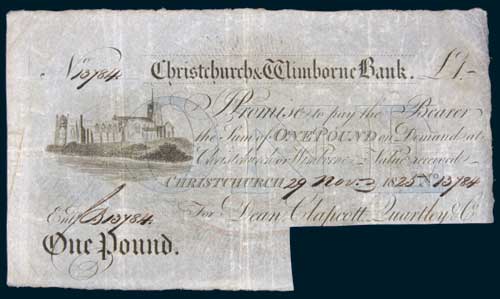 No 13784. Christchurch & Wimborne Bank. £1,-
I Promise to pay the Bearer
the Sum of ONE POUND on Demand at
Christchurch or Wimborne Value received
CHRISTCHURCH 29 Nov. 1825 No 13784
For Dean, Clapcott, Quartley & Co
Entd 13784.
One Pound.